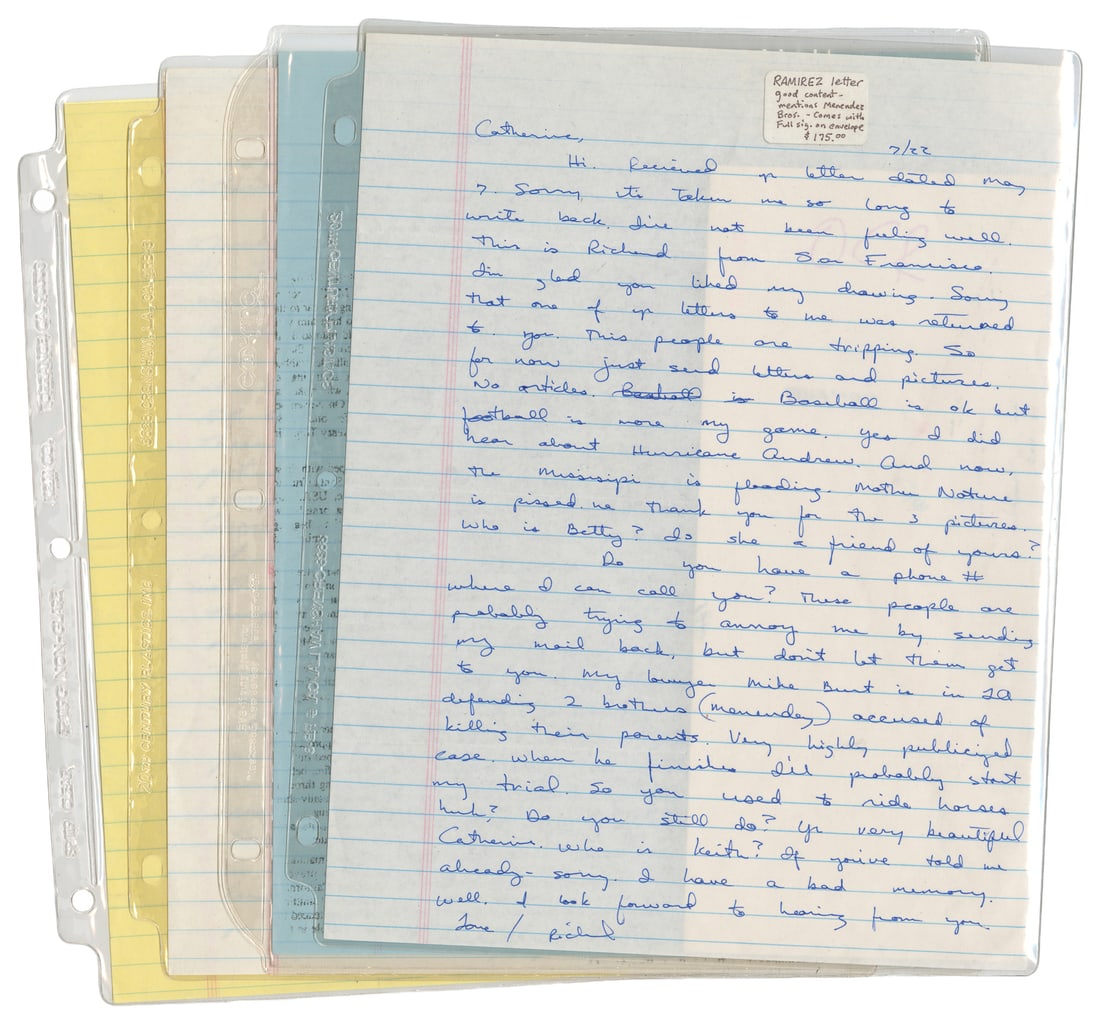 RAMIREZ letter
good content-
mentions Menendez
Bros. - Comes with
Full sig. on envelope
$175.00
7/22
Catherine,
Hi. Recieved yr letter dated May
7. Sorry its taken me so long to
write back. Ive not been feeling well.
This is Richard from San Francisco.
Im glad you liked my drawing. Sorry
that one of yr letters to me was returned
to you. This people are tripping. So
for now just send letters and pictures.
No articles. Baseball is Baseball is ok but
football is more my game. Yes I did
hear about Hurricane Andrew. And now,
the Missisipi is flooding. Mother Nature
is pissed. Thank you for the 3 pictures.
Who is Betty? Is she a friend of yours?
Do you have a phone #
where I can call you? These people are
probably trying to annoy me by sending
my mail back, but don't let them get
to you. My lawyer Mike Burt is in LA
defending 2 brothers (Menendez) accused of
killing their parents. Very highly publicized
case. When he finishes I'll probably start
my trial. So you used to ride horses
huh? Do you still do? Yr very beautiful
Catherine. Who is Keith? If you've told me
already- sorry. I have a bad memory.
Well. I look forward to hearing from you
Love / Richard